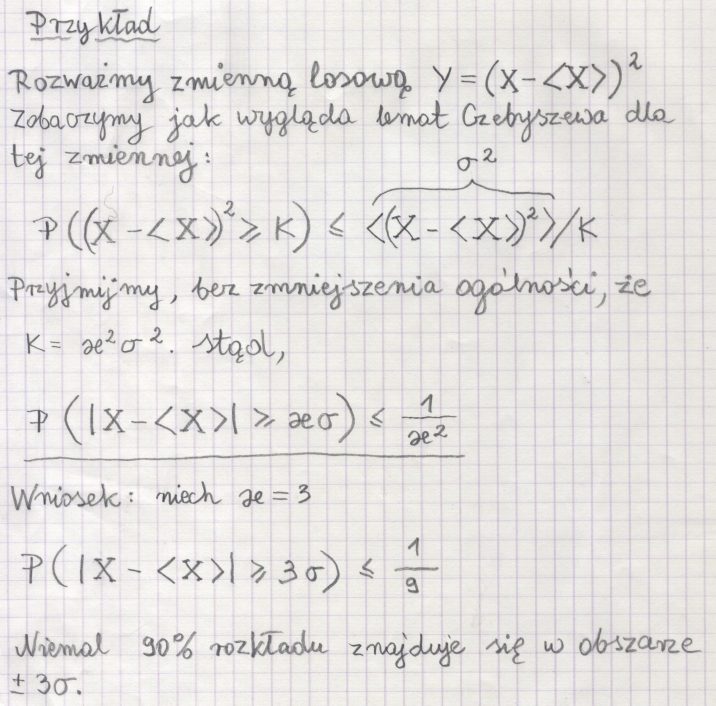 Przykład
Rozważmy zmienną losową Y = (X - <X>)²
Zobaczymy jak wygląda lemat Czebyszewa dla
tej zmiennej:
σ²
P((X - <X>)² ⩾ K) ⩽ <(X - <X>)²>/K
Przyjmijmy, bez zmniejszenia ogólności, że
K = æ²σ². Stąd,
P(|X - <X>| ⩾ æσ) ⩽ 1/æ²
Wniosek: niech æ = 3
P(|X - <X>| ⩾ 3σ) ⩽ 1/9
Niemal 90% rozkładu znajduje się w obszarze
± 3σ.